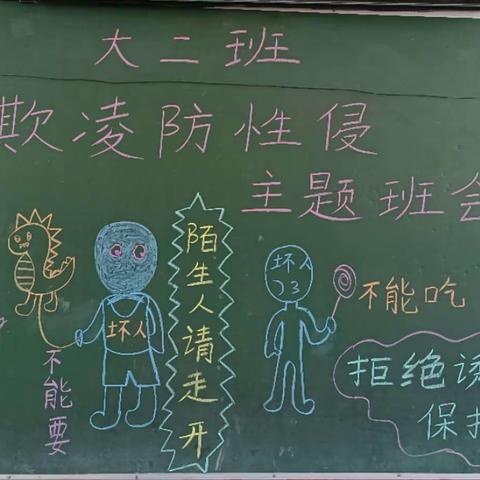 大二班
欺凌防性侵
主题班会
不能要
坏人
陌生人请走开
坏人
不能吃
拒绝诱
保护